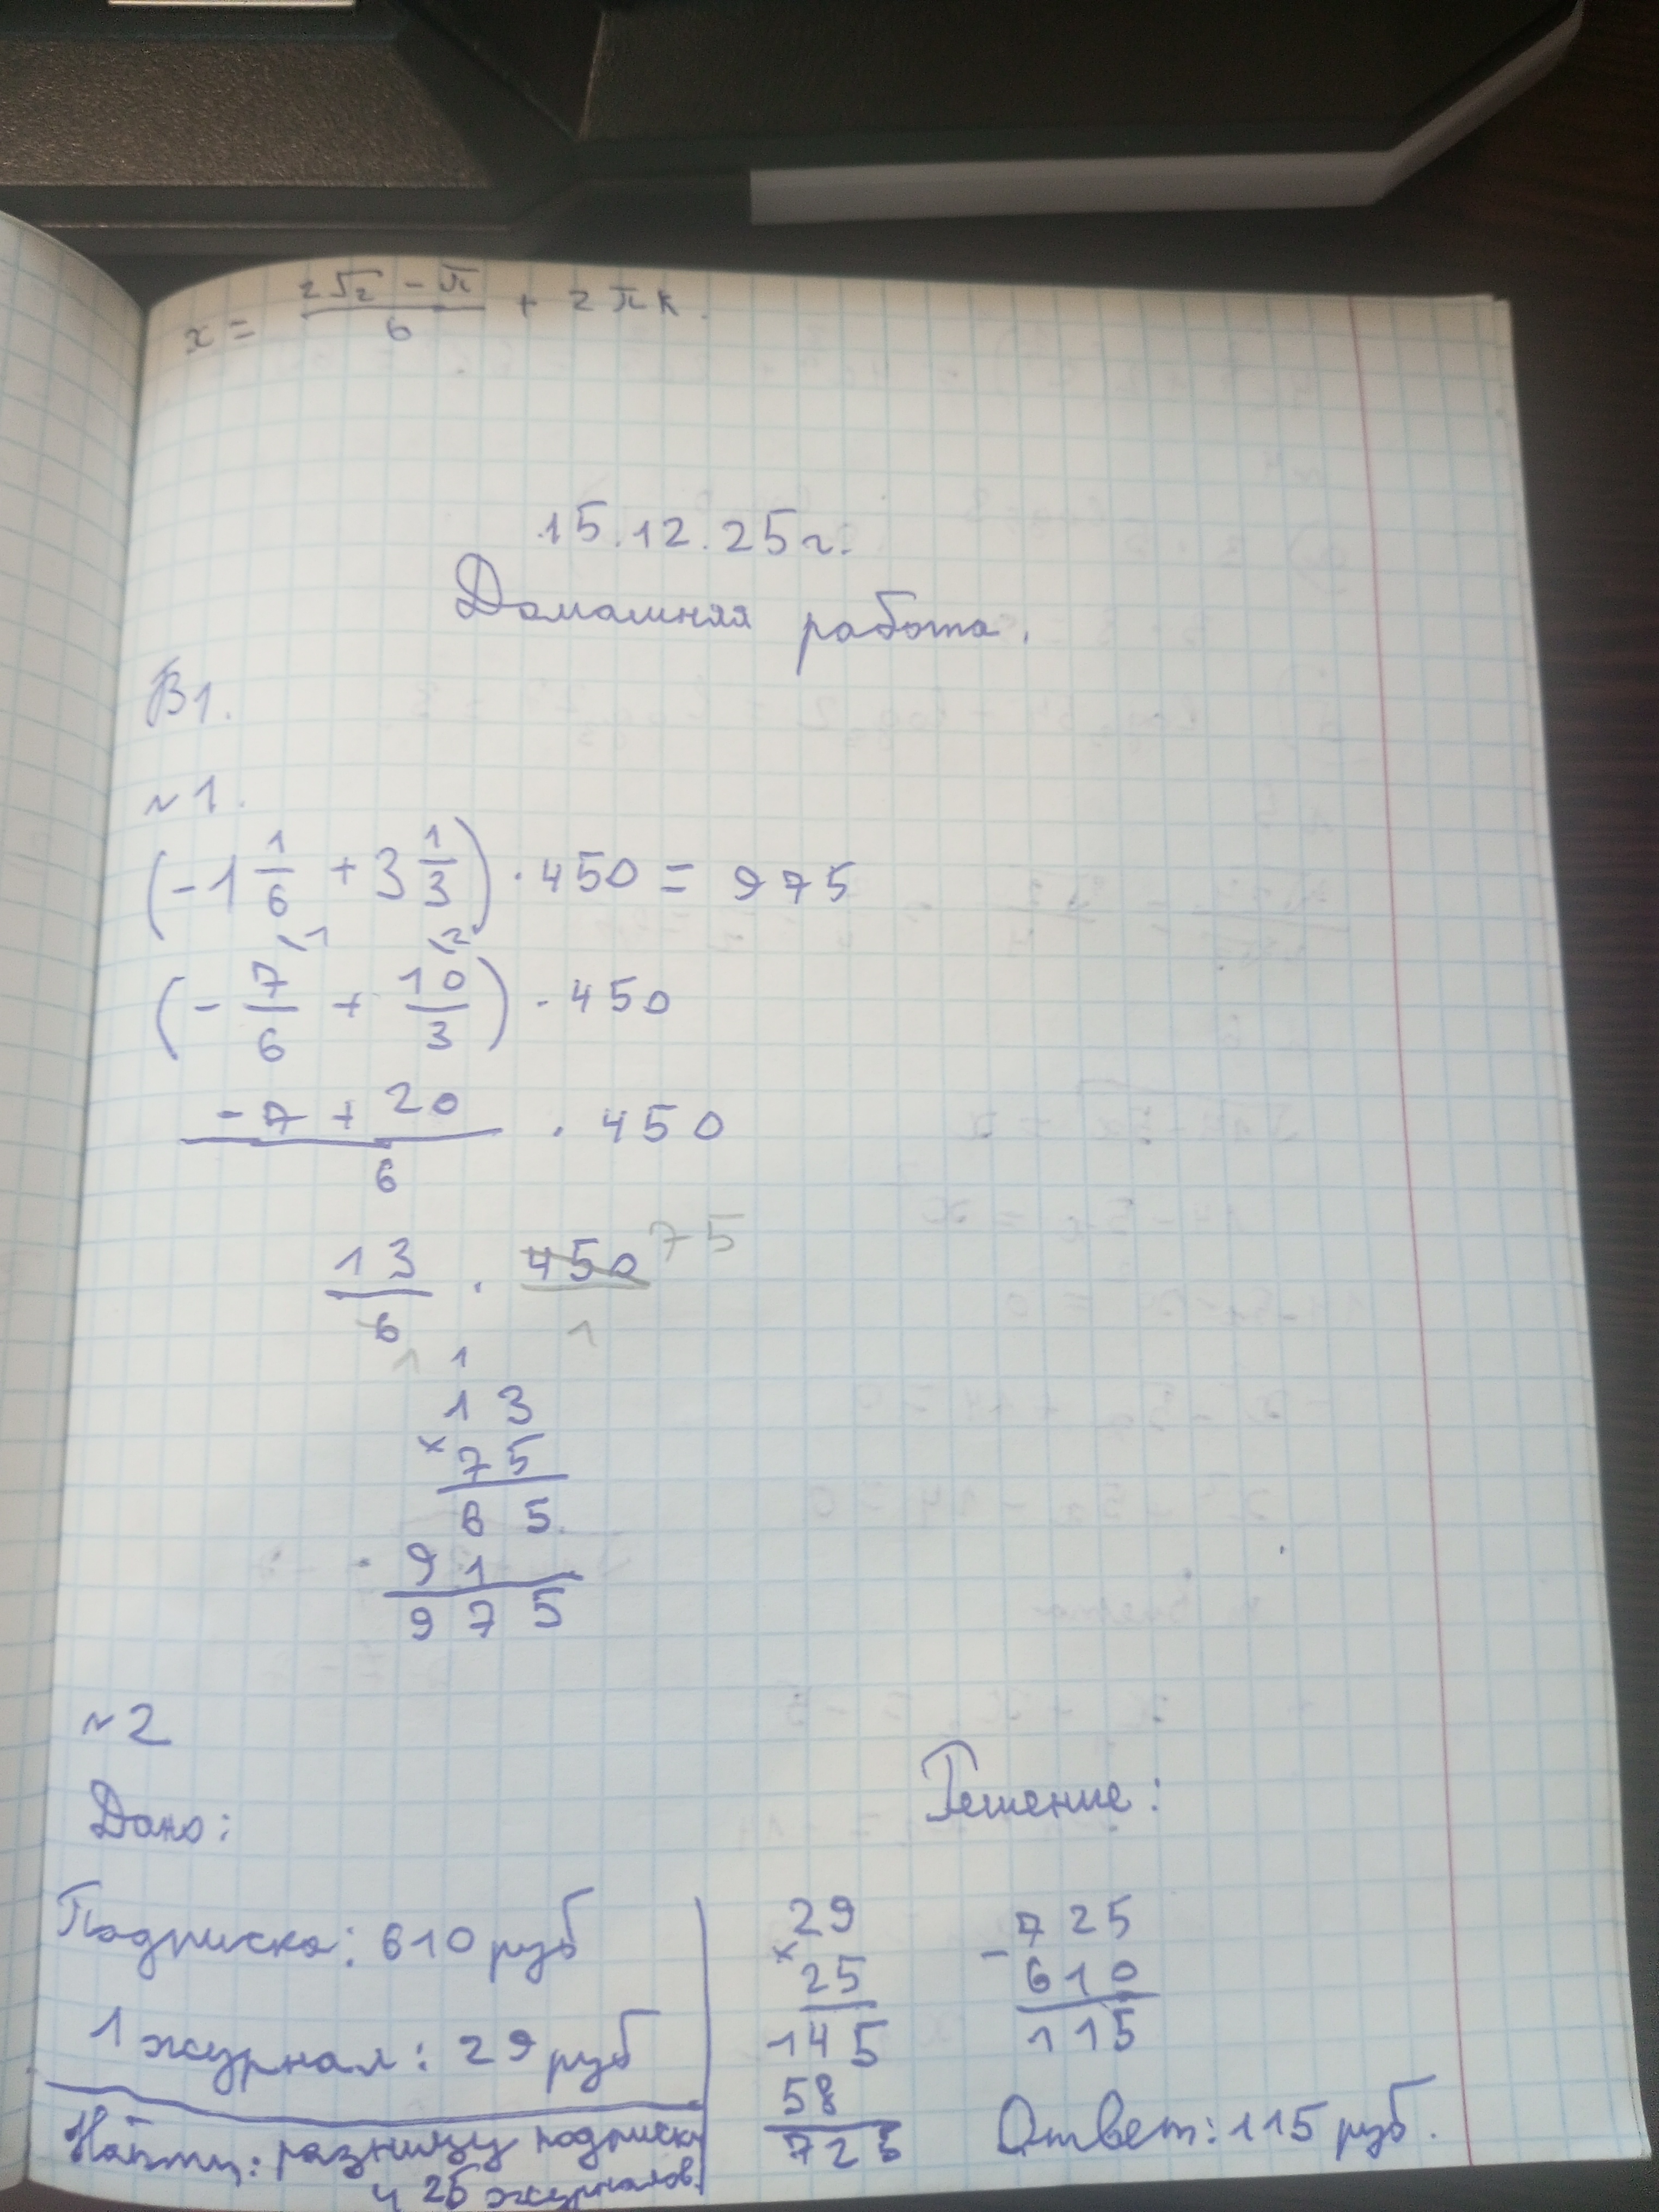 x = (2√2 − π)/6 + 2πk.
15.12.25г.
Домашняя работа.
В1.
№1.
(−1 1/6 + 3 1/3) · 450 = 975
(− 7/6 \1 + 10/3 \2) · 450
(−7 + 20)/6 · 450
13/6 · 450/1 75
1 1
13
× 75
65
91
975
№2
Дано:
Решение:
Подписка: 610 руб
1 журнал: 29 руб
Найти: разницу подписки
и 25 журналов.
29
× 25
145
58
725
− 725
610
115
Ответ: 115 руб.